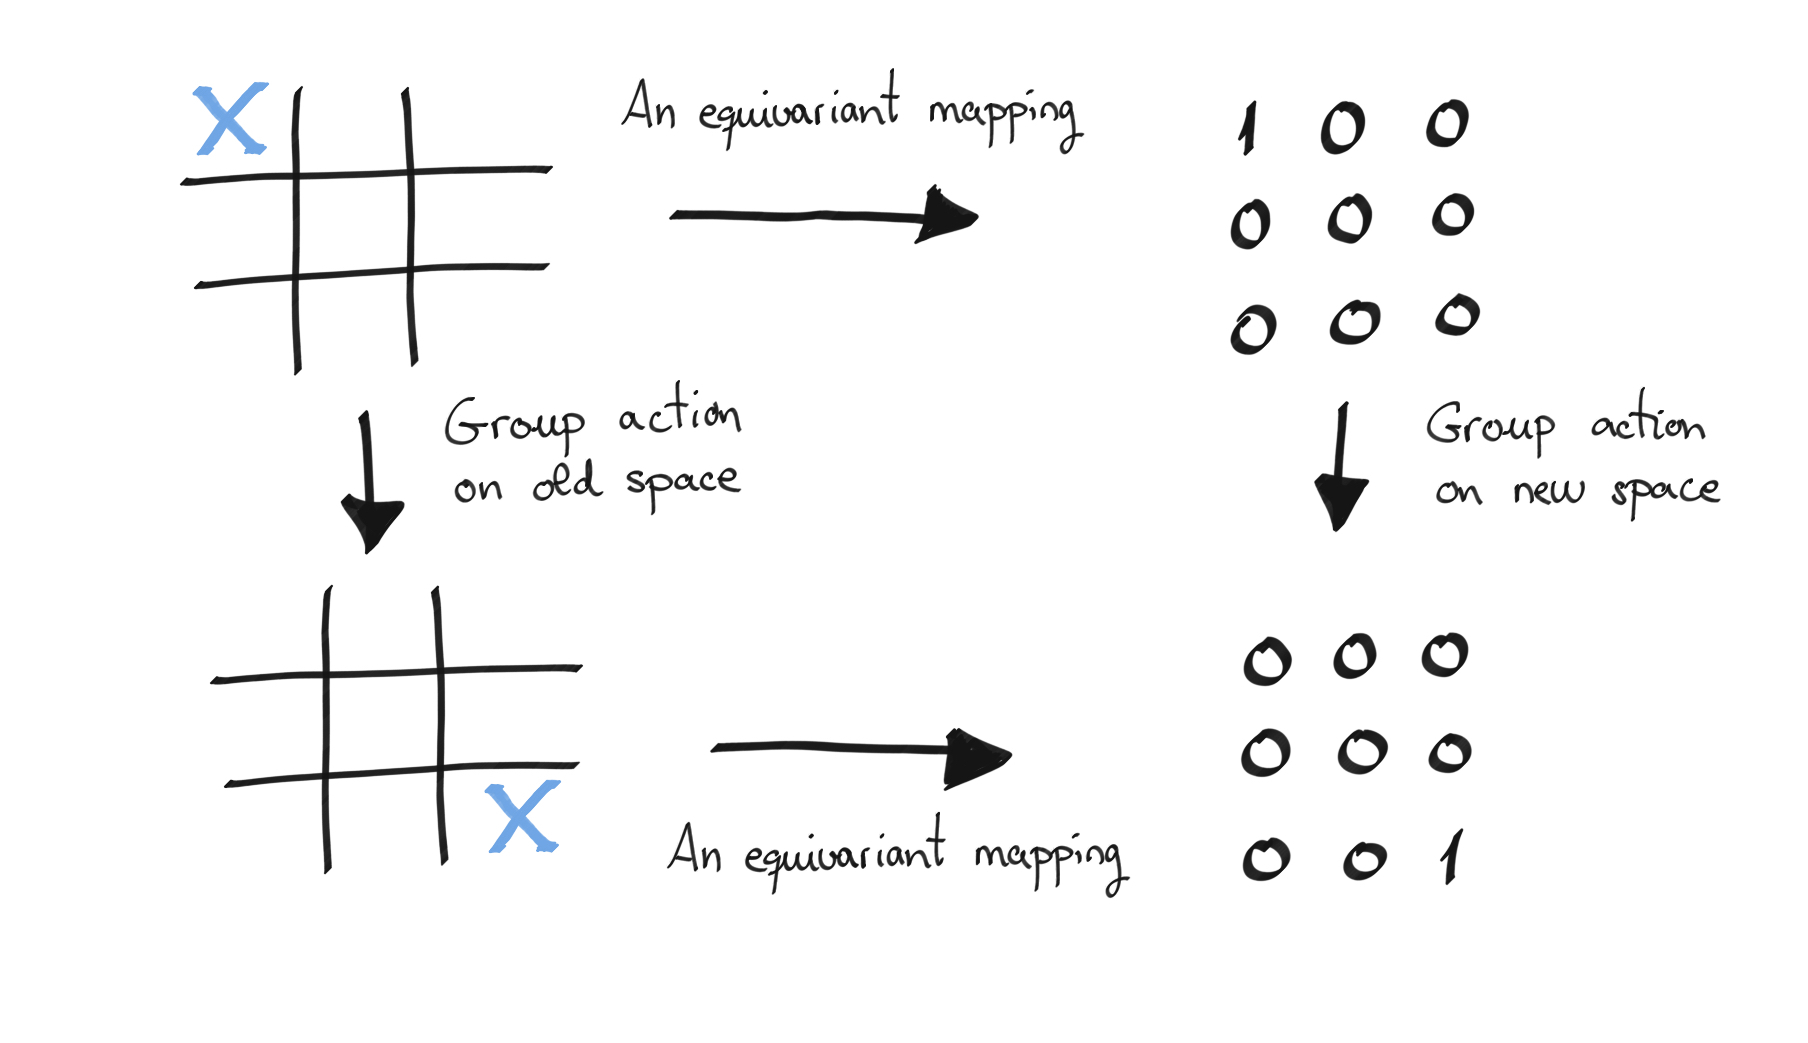 X
An equivariant mapping
1 0 0
0 0 0
0 0 0
Group action
on old space
Group action
on new space
X
0 0 0
0 0 0
0 0 1
An equivariant mapping